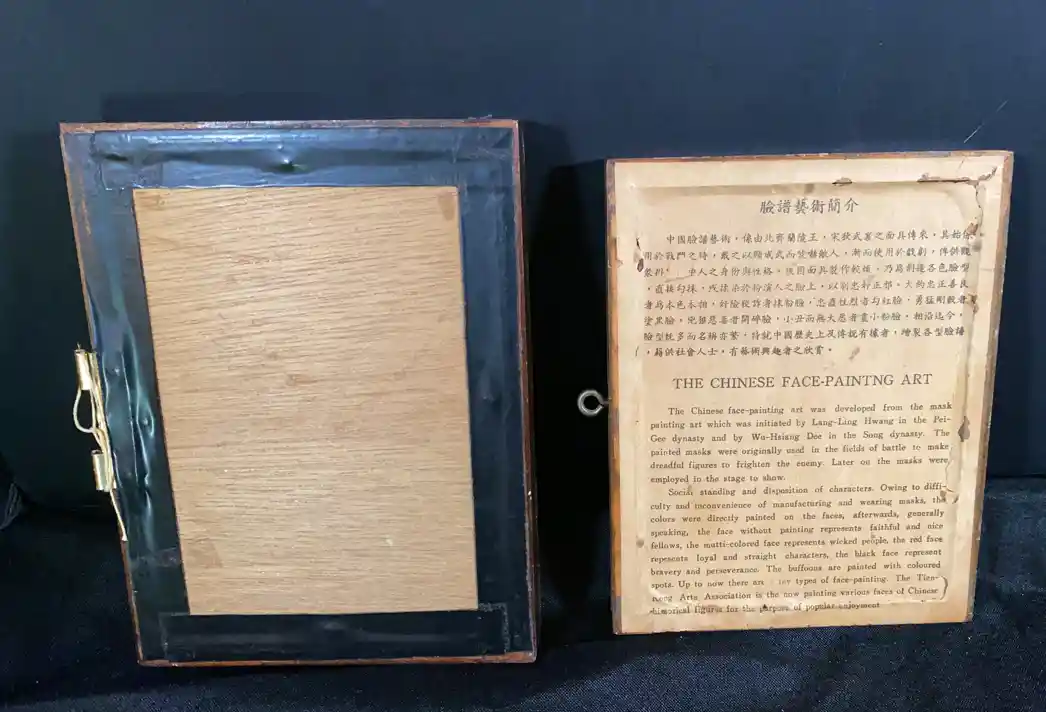 臉譜藝術簡介
中國臉譜藝術，係由北齊蘭陵王，宋狄武襄之面具傳來，其始
用於戰鬥之時，戴之以顯威武而號赫敵人，漸而使用於戲劇，
中人之身份與性格。後因面具製作較煩，乃為創造各色臉型
，直接勾抹，或抹染於扮演人之臉上，以別忠奸正邪。大約忠正善良
者為本色本相，奸險狡詐者抹粉臉，忠直性烈者勾紅臉，勇猛剛毅者
塗黑臉，兇狠惡毒者開碎臉，小丑而無大惡者畫小粉臉，相沿迄今，
臉型既多而名稱亦繁，特就中國歷史上及傳說有據者，繪製各型臉譜
，藉供社會人士，有藝術興趣者之欣賞。
THE CHINESE FACE-PAINTNG ART
The Chinese face-painting art was developed from the mask
painting art which was initiated by Lang-Ling Hwang in the Pei-
Gee dynasty and by Wu-Hsiang Dee in the Song dynasty. The
painted masks were originally used in the fields of battle to make
dreadful figures to frighten the enemy. Later on the masks were
employed in the stage to show.
Social standing and disposition of characters. Owing to diffi-
culty and inconvenience of manufacturing and wearing masks, the
colors were directly painted on the faces, afterwards, generally
speaking, the face without painting represents faithful and nice
fellows, the mutti-colored face represents wicked people, the red face
repesents loyal and straight characters, the black face represent
bravery and perseverance. The buffoons are painted with coloured
spots. Up to now there are types of face-painting. The Tien-
Arts Association is the now painting various faces of Chinese
historical figures for the purpose of popular enjoyment